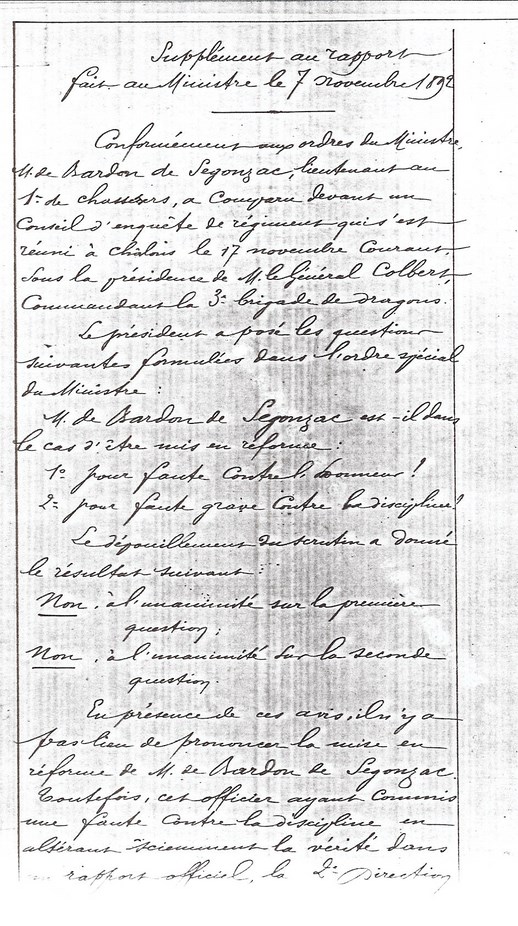 Supplément au rapport
fait au Ministre le 7 novembre 1892
Conformément aux ordres du Ministre,
M. de Bardon de Segonzac, lieutenant au
1er de chasseurs, a comparu devant un
Conseil d'enquête de régiment qui s'est
réuni à Châlons le 17 novembre courant,
sous la présidence de M. le Général Colbert,
Commandant la 3e brigade de dragons.
Le président a posé les questions
suivantes formulées dans l'ordre spécial
du Ministre :
M. de Bardon de Segonzac est-il dans
le cas d'être mis en réforme :
1o pour faute contre l'honneur ?
2o pour faute grave contre la discipline ?
Le dépouillement du scrutin a donné
le résultat suivant :
Non, à l'unanimité sur la première
question ;
Non, à l'unanimité sur la seconde
question.
En présence de ces avis, il n'y a
pas lieu de prononcer la mise en
réforme de M. de Bardon de Segonzac.
Toutefois, cet officier ayant commis
une faute contre la discipline en
altérant sciemment la vérité dans
rapport officiel, la 2e Direction